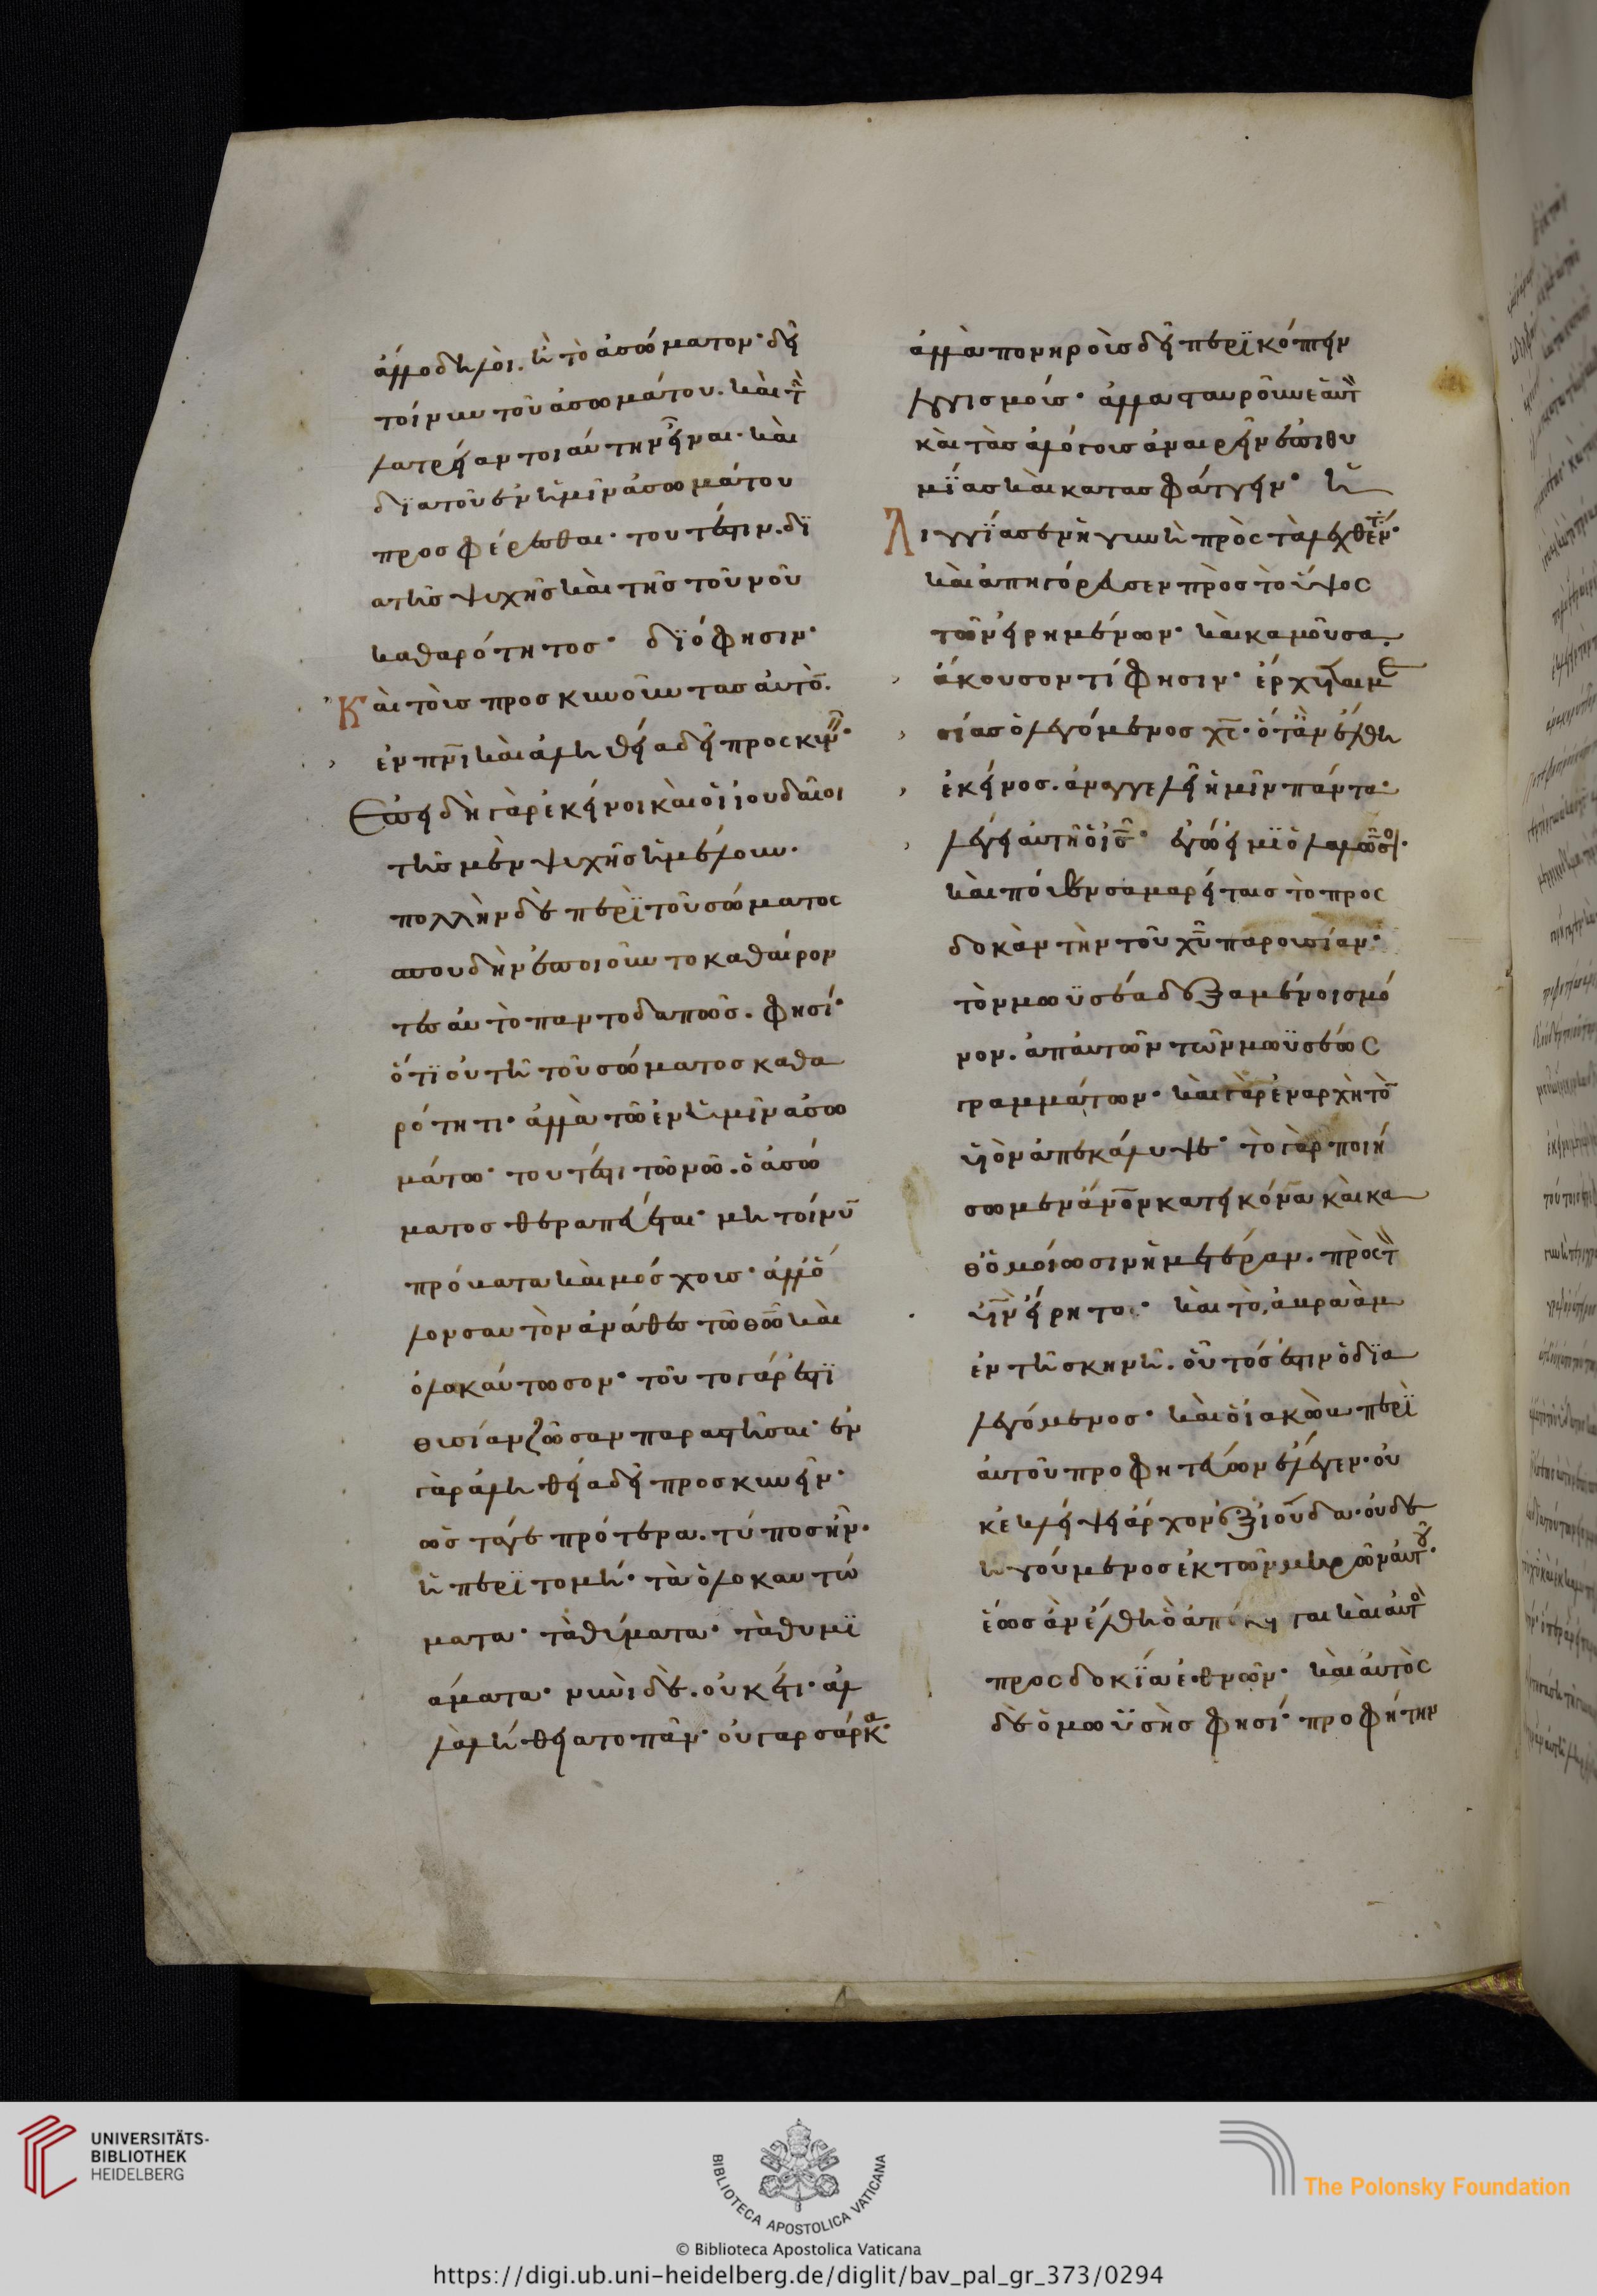 ἄλλο δηλοῖ. ἢ τὸ ἀσώματον· δεῖ
τοίνυν τοῦ ἀσωμάτου. καὶ τὴν
λατρείαν τοιαύτην εἶναι· καὶ
δϊατοῦ ἐν ἡμῖν ἀσωμάτου
προσφέρεσθαι· τουτέστιν. δϊ
ατῆς ψυχῆς καὶ τῆς τοῦ νοῦ
καθαρότητος· δϊό φησιν·
Καὶ τοὺς προσκυνοῦντας αὐτὸν.
ἐν πνι καὶ ἀληθεία δεῖ προσκυν
Ἐπειδὴ γὰρ ἐκεῖνοι καὶ οἱ ἰουδαῖοι
τῆς μὲν ψυχῆς ἡμέλουν.
πολλὴν δὲ περὶ τοῦ σώματος
σπουδὴν ἐποιοῦντο καθαίρον
τες αὐτὸ παντοδαπῶς. φησί·
ὅτϊ οὐ τῆ τοῦ σώματος καθα
ρότητι· ἀλλὰ τῶ ἐν ἡμῖν ἀσω
μάτω· τουτέστι τῶ νῶ. ὁ ἀσώ
ματος θεραπεύεται· μὴ τοίνυν
πρόβατα καὶ μόσχους· ἀλλ' ὅ
λον σαυτὸν ἀνάθες τῶ θῶ καὶ
ὁλοκαύτωσον· τοῦτο γάρ ἐστϊ
θυσίαν ζῶσαν παραστῆσαι· ἐν
γὰρ ἀληθεία δεῖ προσκυνεῖν·
ὡς τάγε πρότερα. τύπος ἦν·
ἡ περϊτομή· τὰ ὁλοκαυτώ
ματα· τὰ θύματα· τὰ θυμϊ
άματα· νυνὶ δὲ. οὐκέτι· ἀλ
λ' ἀλήθεια τοπᾶν· οὐ γαρ σάρκα·
ἀλλὰ πονηροὺς δεῖ περϊκόπτειν
λογισμούς· ἀλλα σταυροῦν ἑαυτὸν
καὶ τὰς ἀλόγους ἀναιρεῖν ἐπιθυ
μΐας καὶ κατασφάττειν· ἡ
Λιγγΐασεν ἡ γυνὴ πρὸς τὰ λεχθέντα·
καὶ ἀπηγόρευσεν πρὸς τὸ ὕψος
τῶν εἰρημένων· καὶ καμοῦσα.
ἄκουσον τί φησιν· ἔρχεται με
σίας ὁ λεγόμενος χς· ὅταν ἔλθη
ἐκεῖνος. ἀναγγελεῖ ἡμῖν πάντα·
λέγει αὐτῆ ὁ ις· ἐγώ εἰμϊ ὁ λαλῶν σοι·
καὶ πόθεν σαμαρείταις τὸ προς
δοκᾶν τὴν τοῦ χυ παρουσίαν·
τὸν μωϋσέα δεξαμένοις μό
νον. ἀπ' αὐτῶν τῶν μωϋσέως
γραμμάτων· καὶ γὰρ ἐν αρχῆ τὸν
υἱὸν ἀπεκάλυψε· τὸ γὰρ ποιή
σωμεν ἄνον κατ' εἰκόνα καὶ κα
θ' ὁμοίωσιν ἡμετέραν. πρὸς τὸν
υἱὸν εἴρητο· καὶ τῶ ἀβραὰμ
ἐν τῆ σκηνῆ. οὗτός ἐστιν ὁ δϊα
λεγόμενος· καὶ ὁ ἰακὼβ περὶ
αὐτοῦ προφητεύων ἔλεγεν· οὐ
κ ἐκλείψει ἄρχων ἐξ ἰούδα· οὐδὲ
ἡγούμενος ἐκ τῶν μηρῶν αὐτοῦ·
ἕως ἂν ἔλθη ὃ ἀπόκειται καὶ αὐτὸς
προςδοκΐα ἐθνῶν· καὶ αὐτὸς
δὲ ὁ μωϋσὴς φησί· προφήτην
UNIVERSITÄTS-
BIBLIOTHEK
HEIDELBERG
BIBLIOTECA APOSTOLICA VATICANA
The Polonsky Foundation
© Biblioteca Apostolica Vaticana
https://digi.ub.uni-heidelberg.de/diglit/bav_pal_gr_373/0294